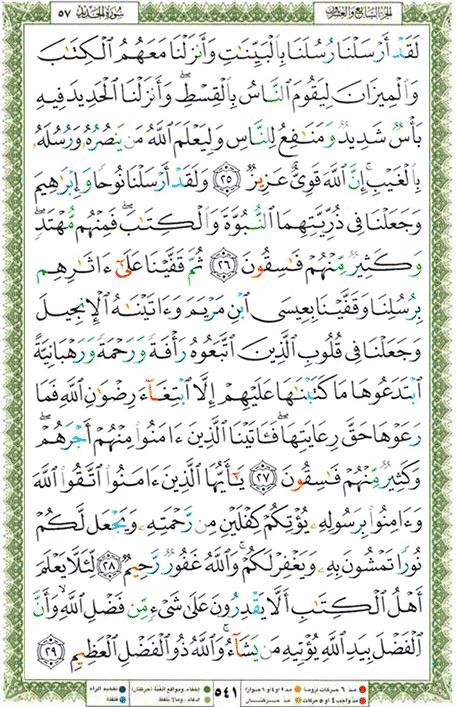 سُورَةُ الحَدِيدِ ٥٧
الجزءُ السَّابِعُ وَالعِشْرُونَ
لَقَدْ أَرْسَلْنَا رُسُلَنَا بِٱلْبَيِّنَٰتِ وَأَنزَلْنَا مَعَهُمُ ٱلْكِتَٰبَ
وَٱلْمِيزَانَ لِيَقُومَ ٱلنَّاسُ بِٱلْقِسْطِ ۖ وَأَنزَلْنَا ٱلْحَدِيدَ فِيهِ
بَأْسٌ شَدِيدٌ وَمَنَٰفِعُ لِلنَّاسِ وَلِيَعْلَمَ ٱللَّهُ مَن يَنصُرُهُۥ وَرُسُلَهُۥ
بِٱلْغَيْبِ ۚ إِنَّ ٱللَّهَ قَوِىٌّ عَزِيزٌ ٢٥ وَلَقَدْ أَرْسَلْنَا نُوحًا وَإِبْرَٰهِيمَ
وَجَعَلْنَا فِى ذُرِّيَّتِهِمَا ٱلنُّبُوَّةَ وَٱلْكِتَٰبَ ۖ فَمِنْهُم مُّهْتَدٍ ۖ
وَكَثِيرٌ مِّنْهُمْ فَٰسِقُونَ ٢٦ ثُمَّ قَفَّيْنَا عَلَىٰٓ ءَاثَٰرِهِم
بِرُسُلِنَا وَقَفَّيْنَا بِعِيسَى ٱبْنِ مَرْيَمَ وَءَاتَيْنَٰهُ ٱلْإِنجِيلَ
وَجَعَلْنَا فِى قُلُوبِ ٱلَّذِينَ ٱتَّبَعُوهُ رَأْفَةً وَرَحْمَةً وَرَهْبَانِيَّةً
ٱبْتَدَعُوهَا مَا كَتَبْنَٰهَا عَلَيْهِمْ إِلَّا ٱبْتِغَآءَ رِضْوَٰنِ ٱللَّهِ فَمَا
رَعَوْهَا حَقَّ رِعَايَتِهَا ۖ فَـَٔاتَيْنَا ٱلَّذِينَ ءَامَنُوا۟ مِنْهُمْ أَجْرَهُمْ ۖ
وَكَثِيرٌ مِّنْهُمْ فَٰسِقُونَ ٢٧ يَٰٓأَيُّهَا ٱلَّذِينَ ءَامَنُوا۟ ٱتَّقُوا۟ ٱللَّهَ
وَءَامِنُوا۟ بِرَسُولِهِۦ يُؤْتِكُمْ كِفْلَيْنِ مِن رَّحْمَتِهِۦ وَيَجْعَل لَّكُمْ
نُورًا تَمْشُونَ بِهِۦ وَيَغْفِرْ لَكُمْ ۚ وَٱللَّهُ غَفُورٌ رَّحِيمٌ ٢٨ لِّئَلَّا يَعْلَمَ
أَهْلُ ٱلْكِتَٰبِ أَلَّا يَقْدِرُونَ عَلَىٰ شَىْءٍ مِّن فَضْلِ ٱللَّهِ ۙ وَأَنَّ
ٱلْفَضْلَ بِيَدِ ٱللَّهِ يُؤْتِيهِ مَن يَشَآءُ ۚ وَٱللَّهُ ذُو ٱلْفَضْلِ ٱلْعَظِيمِ ٢٩
مد ٦ حركات لزوماً مد ٢ أو ٤ أو ٦ جوازاً
مد واجب ٤ أو ٥ حركات مد حركتان
٥٤١
إخفاء، ومواقع الغنة (حركتان) تفخيم الراء
إدغام، وما لا يلفظ قلقلة